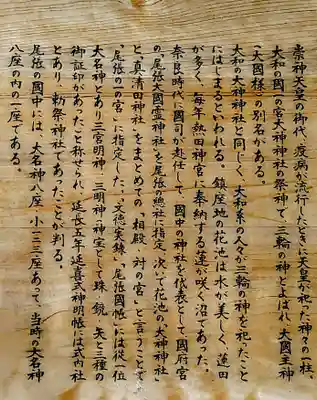 崇神天皇の御代、疫病が流行したときに天皇が祀った神々の一柱、
大和の國一宮大神神社の祭神で、三輪の神とよばれ、大國主神
「大國様」の別名がある。
大和の大神神社と同じく、大和系の人々が三輪の神を祀ったこと
にはじまるといわれる。鎮座地の花池は水が美しく、蓮田
が多く、毎年熱田神宮に奉納する蓮が咲く沼であった。
奈良時代に國司が赴任して、國中の神社を代表として國府宮
の「尾張大國霊神社」を尾張の総社に指定、次いで花池の「大神神社」
と、「真清田神社」をまとめての「相殿、対の宮」と言うことで
「尾張の一の宮」に指定した、「文徳実録」「尾張國帳」には従一位
大名神とあり二宮明神、三明神の神宝として珠、鏡、矢と三種の
御証印があったことも称せられ、延長五年延喜式神明帳には式内社
とあり、勅祭神社であったことが判る。
尾張の國中には、大名神八座、小一二三座あって、当時の大名神
八座の内の一座である。